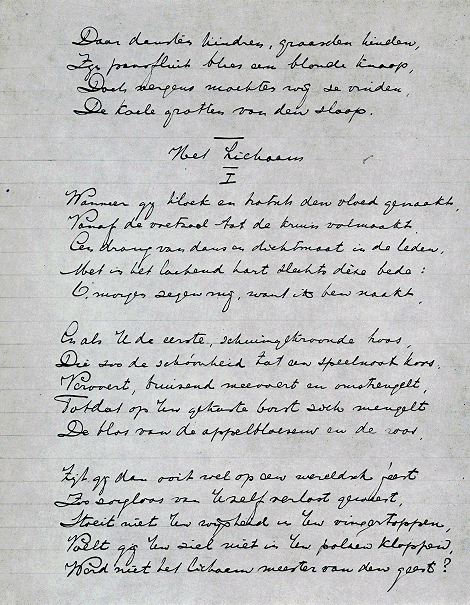 Daar dansten kindren, graasden hinden,
Zijn pansfluit blies een blonde knaap,
Doch nergens mochten wij ze vinden,
De koele grotten van den slaap.
Het Lichaam
I
Wanneer gij kloek en the den vloed genaakt,
Vanaf de voetzool tot de kruin volmaakt,
Een drang van dans en dichtmaat in de leden,
Met in het lachend hart slechts déze bede:
O, morgen zegen mij, want ik ben naakt,
En als U de eerste, schuimgekroonde hoos,
Die zoo de schóonheid tot een speelnoot koos,
Verovert, bruisend meevoert en omstrengelt,
Totdat op Uw gekuste borst zich mengelt
De blos van de appelbloesem en de roos,
Zijt gij dan ooit wel op een wereldsch feest
Zoo zorgloos van Uzelf verlost geweest,
Stoeit niet Uw wijsheid in Uw vingertoppen,
Voelt gij Uw ziel niet in Uw polsen kloppen,
Werd niet het lichaam meester van den geest?